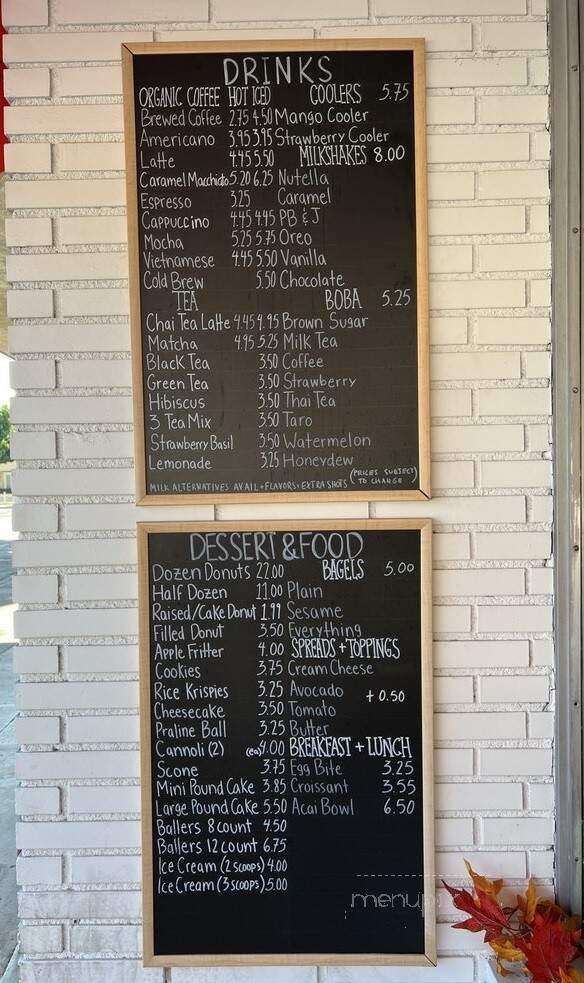 DRINKS
ORGANIC COFFEE HOT ICED
Brewed Coffee 2.75 4.50
Americano 3.95 3.95
Latte 4.45 5.50
Caramel Macchiato 5.20 6.25
Espresso 3.25
Cappuccino 4.45 4.45
Mocha 5.25 5.75
Vietnamese 4.45 5.50
Cold Brew 5.50
TEA
Chai Tea Latte 4.45 4.95
Matcha 4.95 5.25
Black Tea 3.50
Green Tea 3.50
Hibiscus 3.50
3 Tea Mix 3.50
Strawberry Basil 3.50
Lemonade 3.25
COOLERS 5.75
Mango Cooler
Strawberry Cooler
MILKSHAKES 8.00
Nutella
Caramel
PB & J
Oreo
Vanilla
Chocolate
BOBA 5.25
Brown Sugar
Milk Tea
Coffee
Strawberry
Thai Tea
Taro
Watermelon
Honeydew
(PRICES SUBJECT
TO CHANGE)
MILK ALTERNATIVES AVAIL + FLAVORS + EXTRA SHOTS
DESSERT & FOOD
Dozen Donuts 22.00
Half Dozen 11.00
Raised/Cake Donut 1.99
Filled Donut 3.50
Apple Fritter 4.00
Cookies 3.75
Rice Krispies 3.25
Cheesecake 3.50
Praline Ball 3.25
Cannoli (2) (ea) 4.00
Scone 3.75
Mini Pound Cake 3.85
Large Pound Cake 5.50
Ballers 8 count 4.50
Ballers 12 count 6.75
Ice Cream (2 scoops) 4.00
Ice Cream (3 scoops) 5.00
BAGELS 5.00
Plain
Sesame
Everything
SPREADS + TOPPINGS
Cream Cheese
Avocado + 0.50
Tomato
Butter
BREAKFAST + LUNCH
Egg Bite 3.25
Croissant 3.55
Acai Bowl 6.50